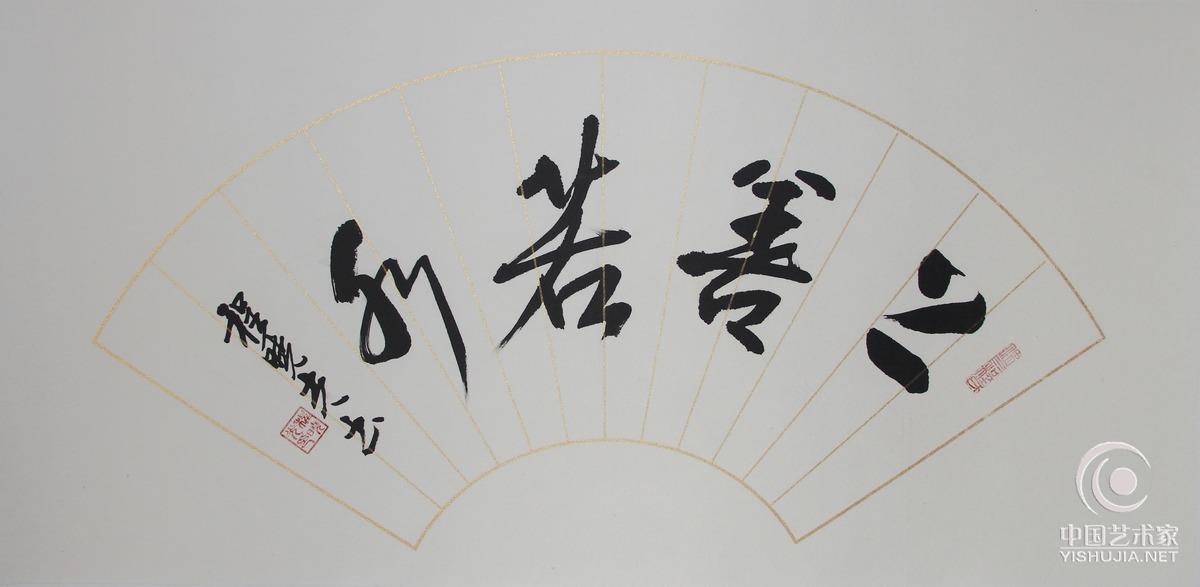 上善若水
中国艺术家
YISHUJIA.NET